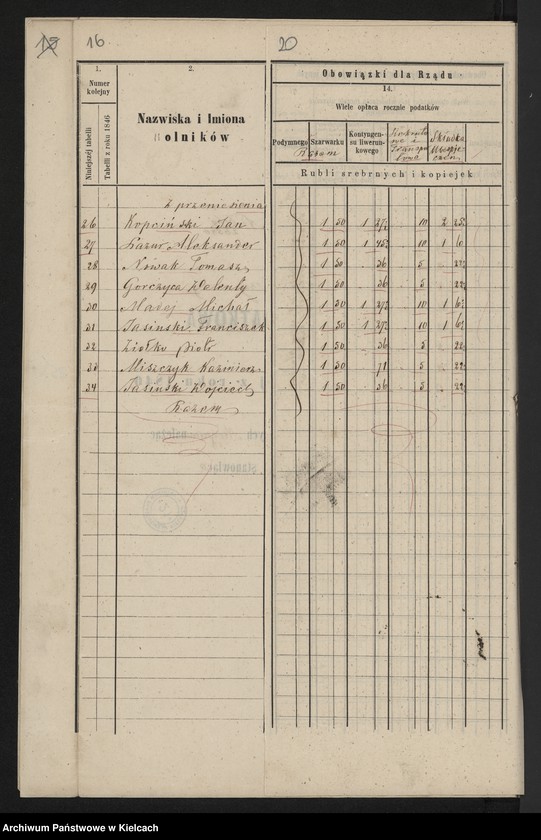 15 16. 20
1. 2. Obowiązki dla Rządu
Numer kolejny 14.
Niniejszej tabelli Tabelli z roku 1846 Nazwiska i Imiona Wiele opłaca rocznie podatków
olników Podymnego Szarwarku Kontyngensu liwerunkowego Składka
Rubli srebrnych i kopiejek
Z przeniesienia
26 Kopciński Jan 1 50 1 27 10 2
27 Łazur Aleksander 1 50 1 45 10 1 6
28 Nowak Tomasz 1 50 36 5 22
29 Gorczyca Walenty 1 50 36 5 22
30 Madej Michał 1 50 1 27 10 1 6
31 Jasiński Franciszek 1 50 1 27 10 1 6
32 Ziołko Piotr 1 50 36 5 22
33 Miszczyk Kazimierz 1 50 71 5 22
34 Jasiński Wojciech 1 50 36 5 22
Razem
Archiwum Państwowe w Kielcach